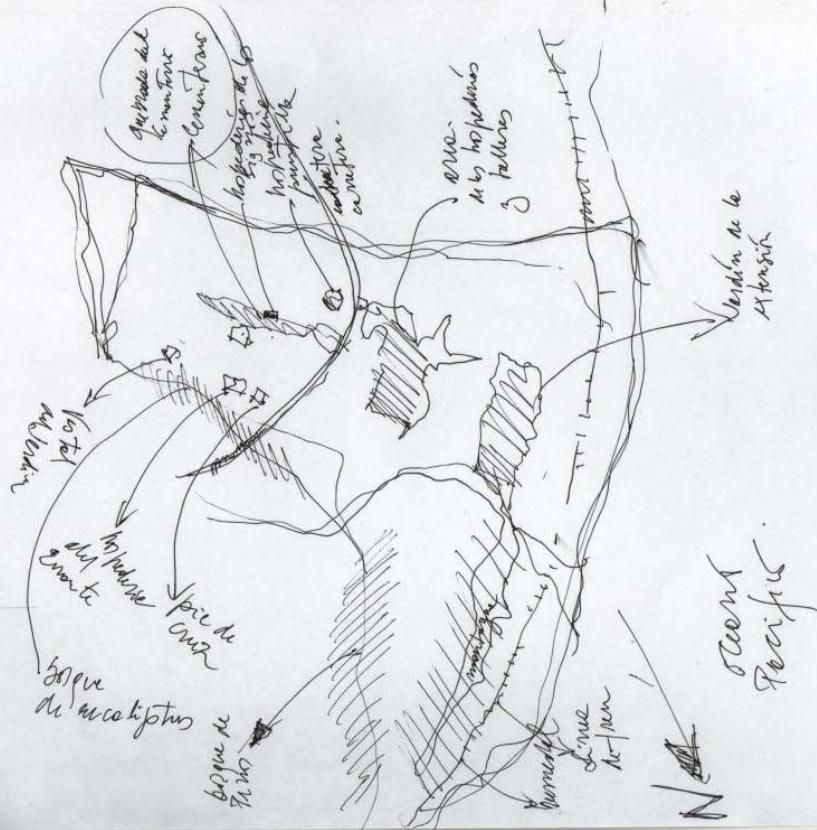 quebrada del
cementerio
cementerio
hospedería de la
hospedería
puntilla
carretera.
area.
de las hospederías
y talleres
Jardín de la
extensión
Vestal
del Jardín
hospedería
del
errante
pie de
cruz
bosque
de eucaliptus
bosque de
Pinos
mantagua
humedal
Linea
del tren
N
Oceano
Pacífico.